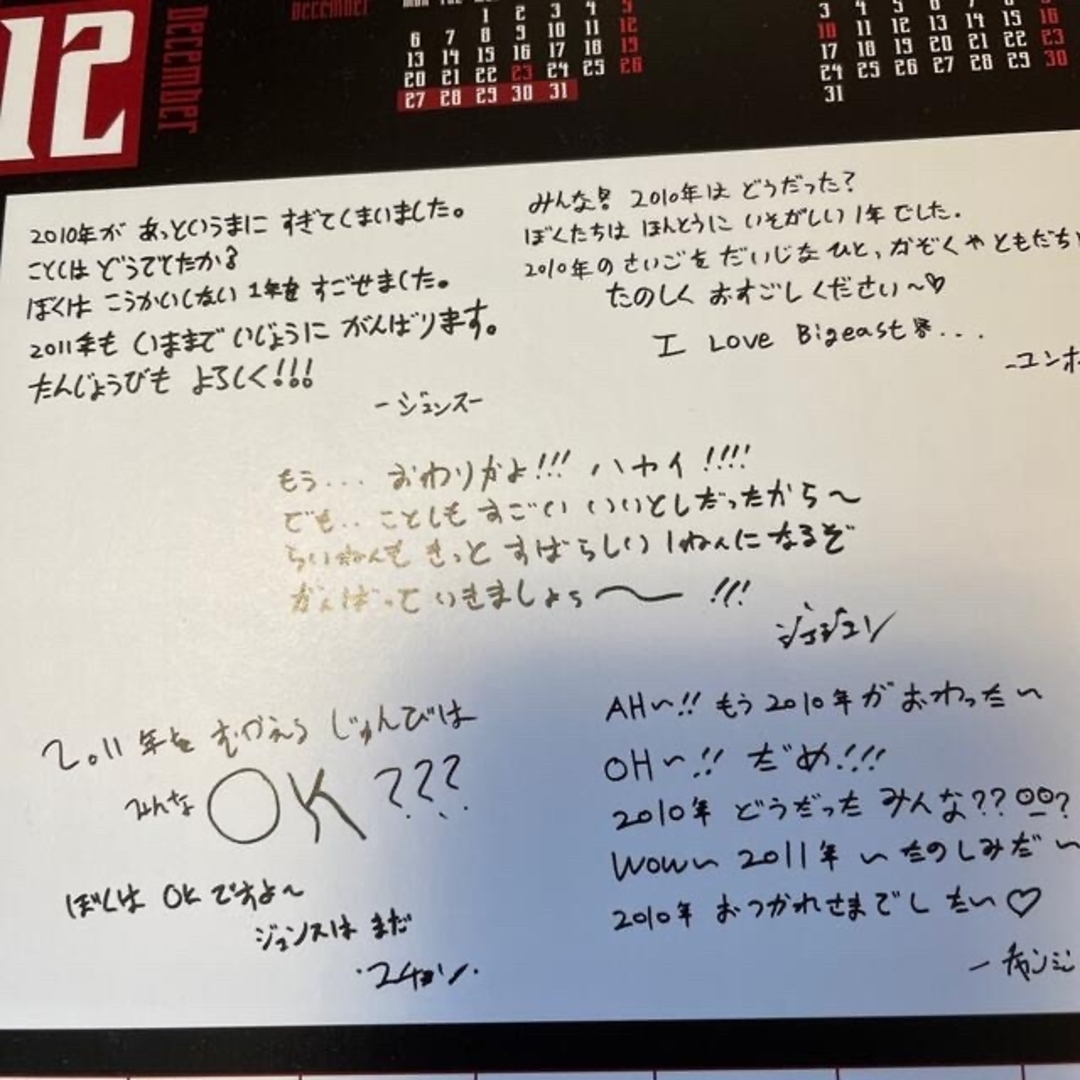 12
December
December
1 2 3 4 5
6 7 8 9 10 11 12
13 14 15 16 17 18 19
20 21 22 23 24 25 26
27 28 29 30 31
3 4 5 6 7 8 9
10 11 12 13 14 15 16
17 18 19 20 21 22 23
24 25 26 27 28 29 30
31
2010年が あっというまに すぎてくまいました。
ことしは どうでてたか?
ぼくは こうかいしない 1年を すごせました。
2011年も いままでいじょうに がんばります。
たんじょうびも よろしく!!!
-ジュンスー
みんな!! 2010年は どうだった?
ぼくたちは ほんとうに いそがしい 1年でした.
2010年の さいごを だいじな ひと, かぞくや ともだち
たのしく おすごしください~♡
I Love Bigeast...
-ユンホ
もう... おわりかよ!!! ハヤイ!!!!
でも.. ことしも すごい いいとしだったから~
らいねんも きっと すばらしい 1ねんに なるぞ
がんばって いきましょぅ~ !!!
ジェジュン
2011年を むかえる じゅんびは
みんな OK???
ぼくは OKですよ~
ジュンスは まだ
・ユチョン・
AH~!! もう 2010年が おわった~
OH~!! だめ!!!
2010年 どうだった みんな??
Wow~ 2011年~たのしみだ~
2010年 おつかれさまでした~♡
-チャンミン